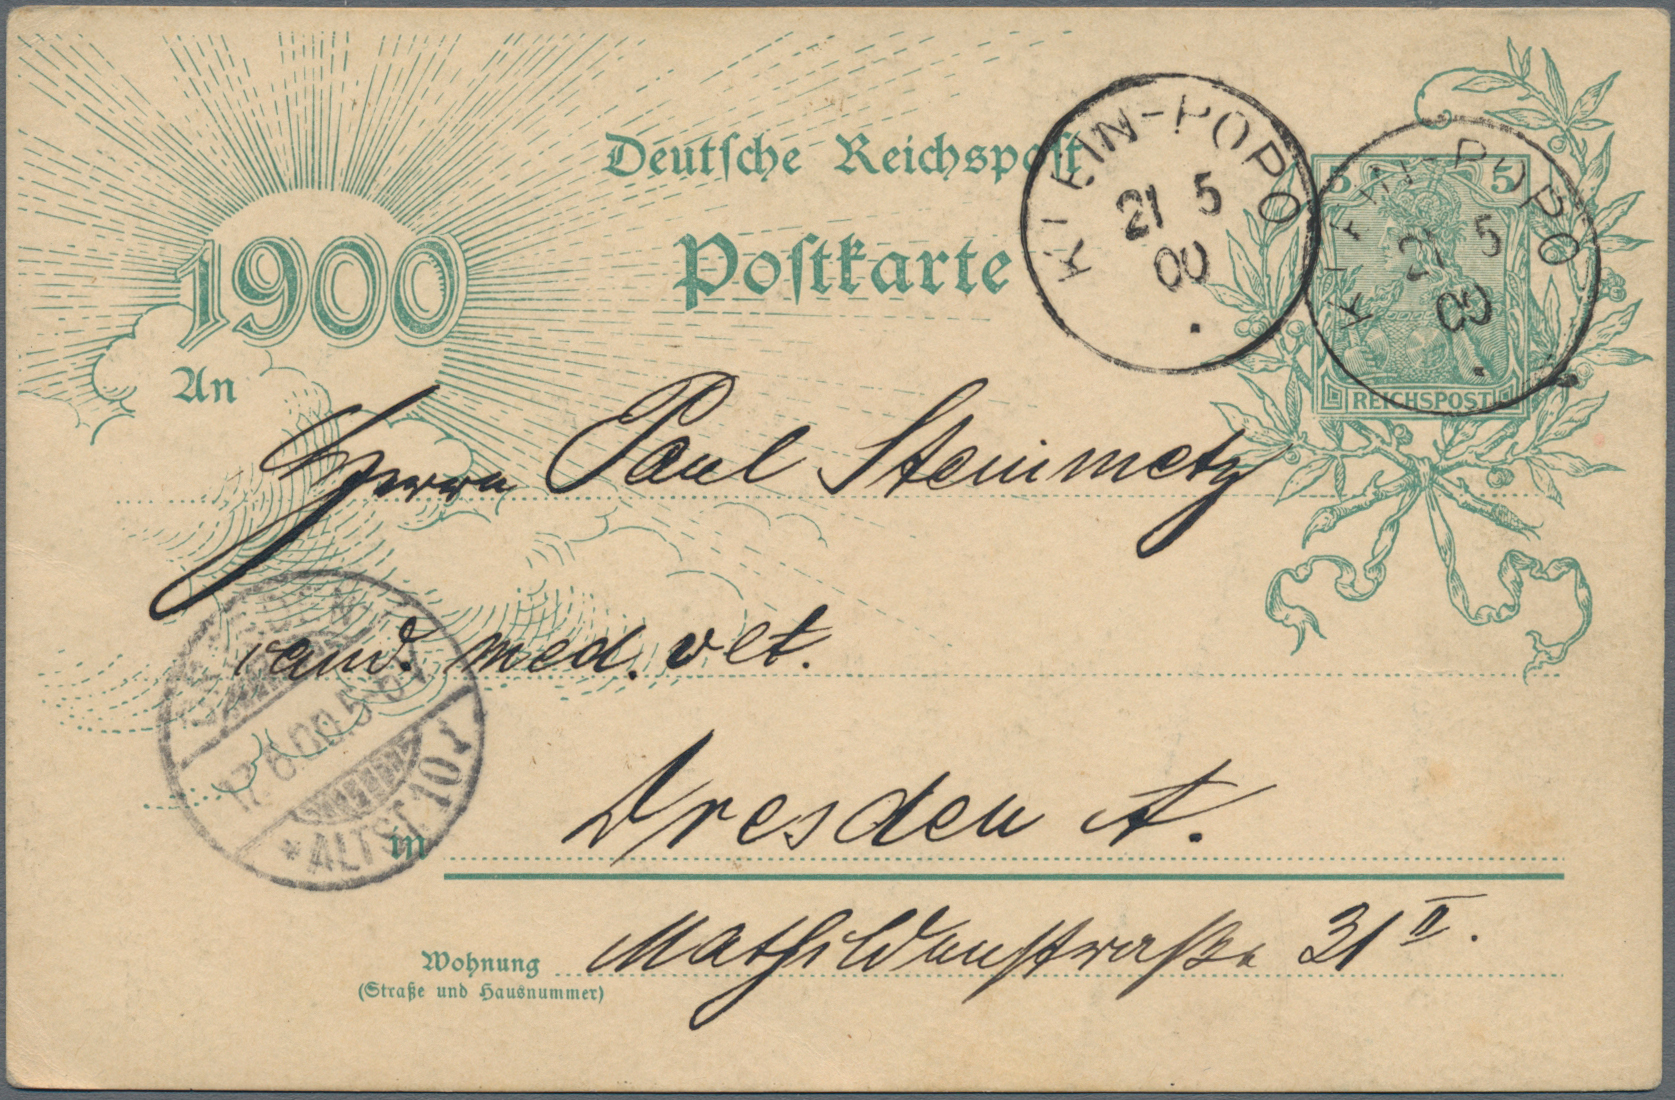 Deutsche Reichspost
Postkarte
1900
KLEIN-POPO
21 5
00
KLEIN-POPO
21 5
00
5 5
REICHSPOST
An
Herrn Paul Steinmetz
cand. med. vet.
17.6.00.5-6V
* ALTST. 10 I
in Dresden A.
Wohnung Mathildenstraße 31 II.
(Straße und Hausnummer)